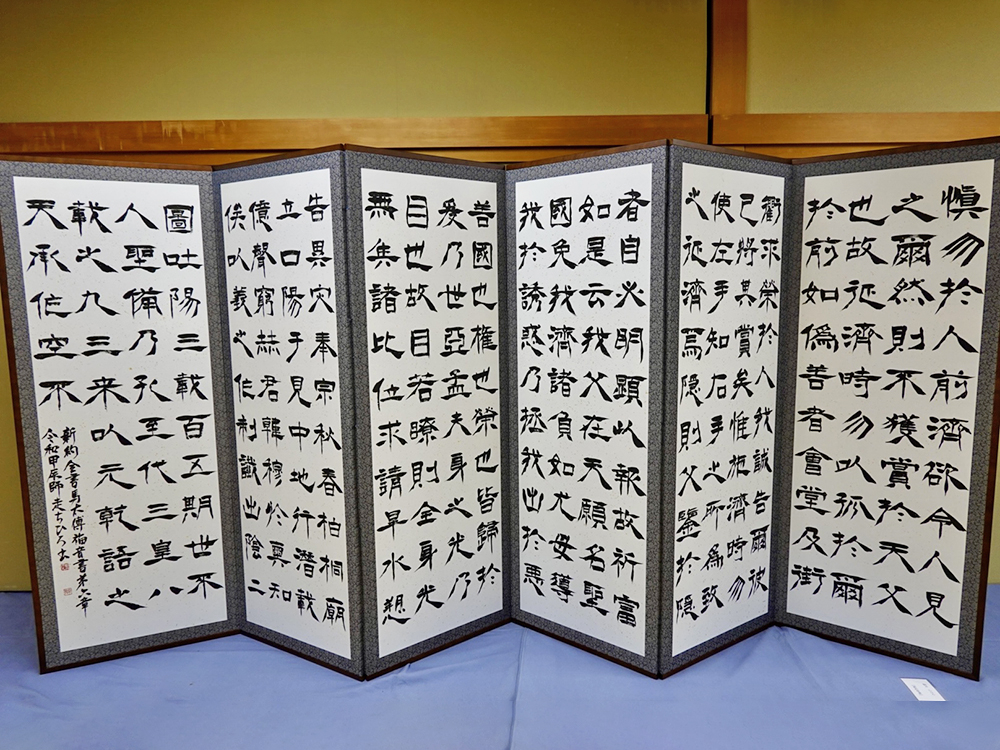 慎勿於人前濟欲令人見
之爾然則不獲賞於天父
也故施濟時勿以孤於爾
於前如偽善者會堂及街
衢求榮於人我誠告爾彼
已將其賞矣惟施濟時勿
使左手知右手之所為致
之施濟焉隠則父鑒於隠
者自必明顯以報故祈富
如是云我父在天願名聖
國免我濟諸負如尤毋導
我於誘惑乃拯我出於惡
善國也權也榮也皆歸於
爰乃世亞孟夫身之光乃
目也故目若瞭則全身光
無隻諸比位求請早水愬
告異災奉宗秋春柏桐廟
立口陽于見中地行潛載
億聲窮赫君韓穆於輿知
俟以義之作制讖出陰二
圖吐陽三載百五期世不
人聖備乃孔至代三皇八
載之九三来以元乾語之
天承作空不
新約全書馬太傳福音書第六章
令和甲辰師走ちひろ書